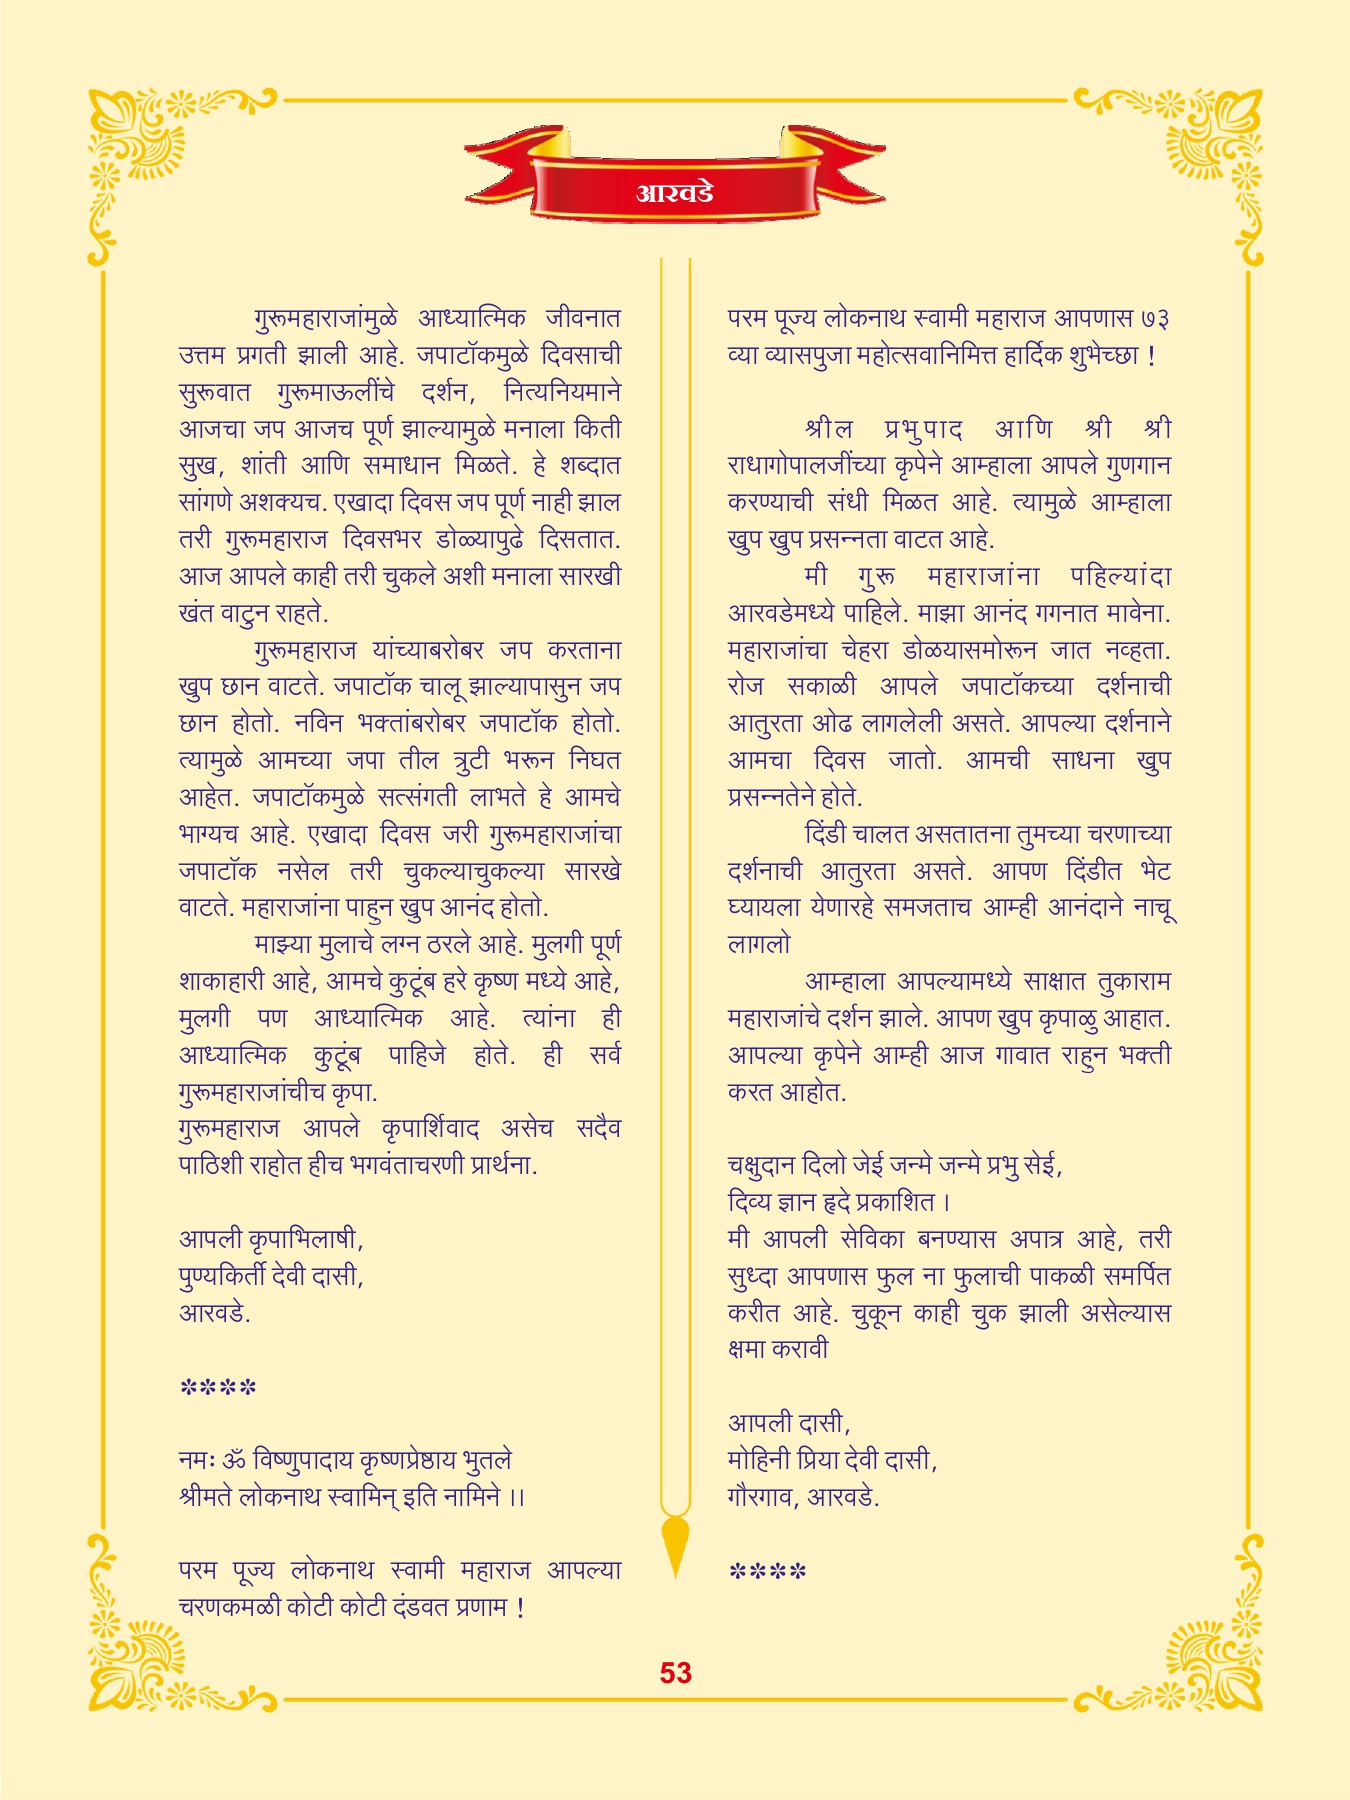 आरवडे
गुरूमहाराजांमुळे आध्यात्मिक जीवनात
उत्तम प्रगती झाली आहे. जपाटॉकमुळे दिवसाची
सुरूवात गुरूमाऊलींचे दर्शन, नित्यनियमाने
आजचा जप आजच पूर्ण झाल्यामुळे मनाला किती
सुख, शांती आणि समाधान मिळते. हे शब्दात
सांगणे अशक्यच. एखादा दिवस जप पूर्ण नाही झाल
तरी गुरूमहाराज दिवसभर डोळ्यापुढे दिसतात.
आज आपले काही तरी चुकले अशी मनाला सारखी
खंत वाटुन राहते.
गुरूमहाराज यांच्याबरोबर जप करताना
खुप छान वाटते. जपाटॉक चालू झाल्यापासुन जप
छान होतो. नविन भक्तांबरोबर जपाटॉक होतो.
त्यामुळे आमच्या जपा तील त्रुटी भरून निघत
आहेत. जपाटॉकमुळे सत्संगती लाभते हे आमचे
भाग्यच आहे. एखादा दिवस जरी गुरूमहाराजांचा
जपाटॉक नसेल तरी चुकल्याचुकल्या सारखे
वाटते. महाराजांना पाहुन खुप आनंद होतो.
माझ्या मुलाचे लग्न ठरले आहे. मुलगी पूर्ण
शाकाहारी आहे, आमचे कुटूंब हरे कृष्ण मध्ये आहे,
मुलगी पण आध्यात्मिक आहे. त्यांना ही
आध्यात्मिक कुटूंब पाहिजे होते. ही सर्व
गुरूमहाराजांचीच कृपा.
गुरूमहाराज आपले कृपार्शिवाद असेच सदैव
पाठिशी राहोत हीच भगवंताचरणी प्रार्थना.
आपली कृपाभिलाषी,
पुण्यकिर्ती देवी दासी,
आरवडे.
****
नमः ॐ विष्णुपादाय कृष्णप्रेष्ठाय भुतले
श्रीमते लोकनाथ स्वामिन् इति नामिने ।।
परम पूज्य लोकनाथ स्वामी महाराज आपल्या
चरणकमळी कोटी कोटी दंडवत प्रणाम !
परम पूज्य लोकनाथ स्वामी महाराज आपणास ७३
व्या व्यासपुजा महोत्सवानिमित्त हार्दिक शुभेच्छा !
श्रील प्रभुपाद आणि श्री श्री
राधागोपालजींच्या कृपेने आम्हाला आपले गुणगान
करण्याची संधी मिळत आहे. त्यामुळे आम्हाला
खुप खुप प्रसन्नता वाटत आहे.
मी गुरू महाराजांना पहिल्यांदा
आरवडेमध्ये पाहिले. माझा आनंद गगनात मावेना.
महाराजांचा चेहरा डोळयासमोरून जात नव्हता.
रोज सकाळी आपले जपाटॉकच्या दर्शनाची
आतुरता ओढ लागलेली असते. आपल्या दर्शनाने
आमचा दिवस जातो. आमची साधना खुप
प्रसन्नतेने होते.
दिंडी चालत असतातना तुमच्या चरणाच्या
दर्शनाची आतुरता असते. आपण दिंडीत भेट
घ्यायला येणारहे समजताच आम्ही आनंदाने नाचू
लागलो
आम्हाला आपल्यामध्ये साक्षात तुकाराम
महाराजांचे दर्शन झाले. आपण खुप कृपाळु आहात.
आपल्या कृपेने आम्ही आज गावात राहुन भक्ती
करत आहोत.
चक्षुदान दिलो जेई जन्मे जन्मे प्रभु सेई,
दिव्य ज्ञान हृदे प्रकाशित ।
मी आपली सेविका बनण्यास अपात्र आहे, तरी
सुध्दा आपणास फुल ना फुलाची पाकळी समर्पित
करीत आहे. चुकून काही चुक झाली असेल्यास
क्षमा करावी
आपली दासी,
मोहिनी प्रिया देवी दासी,
गौरगाव, आरवडे.
****
53